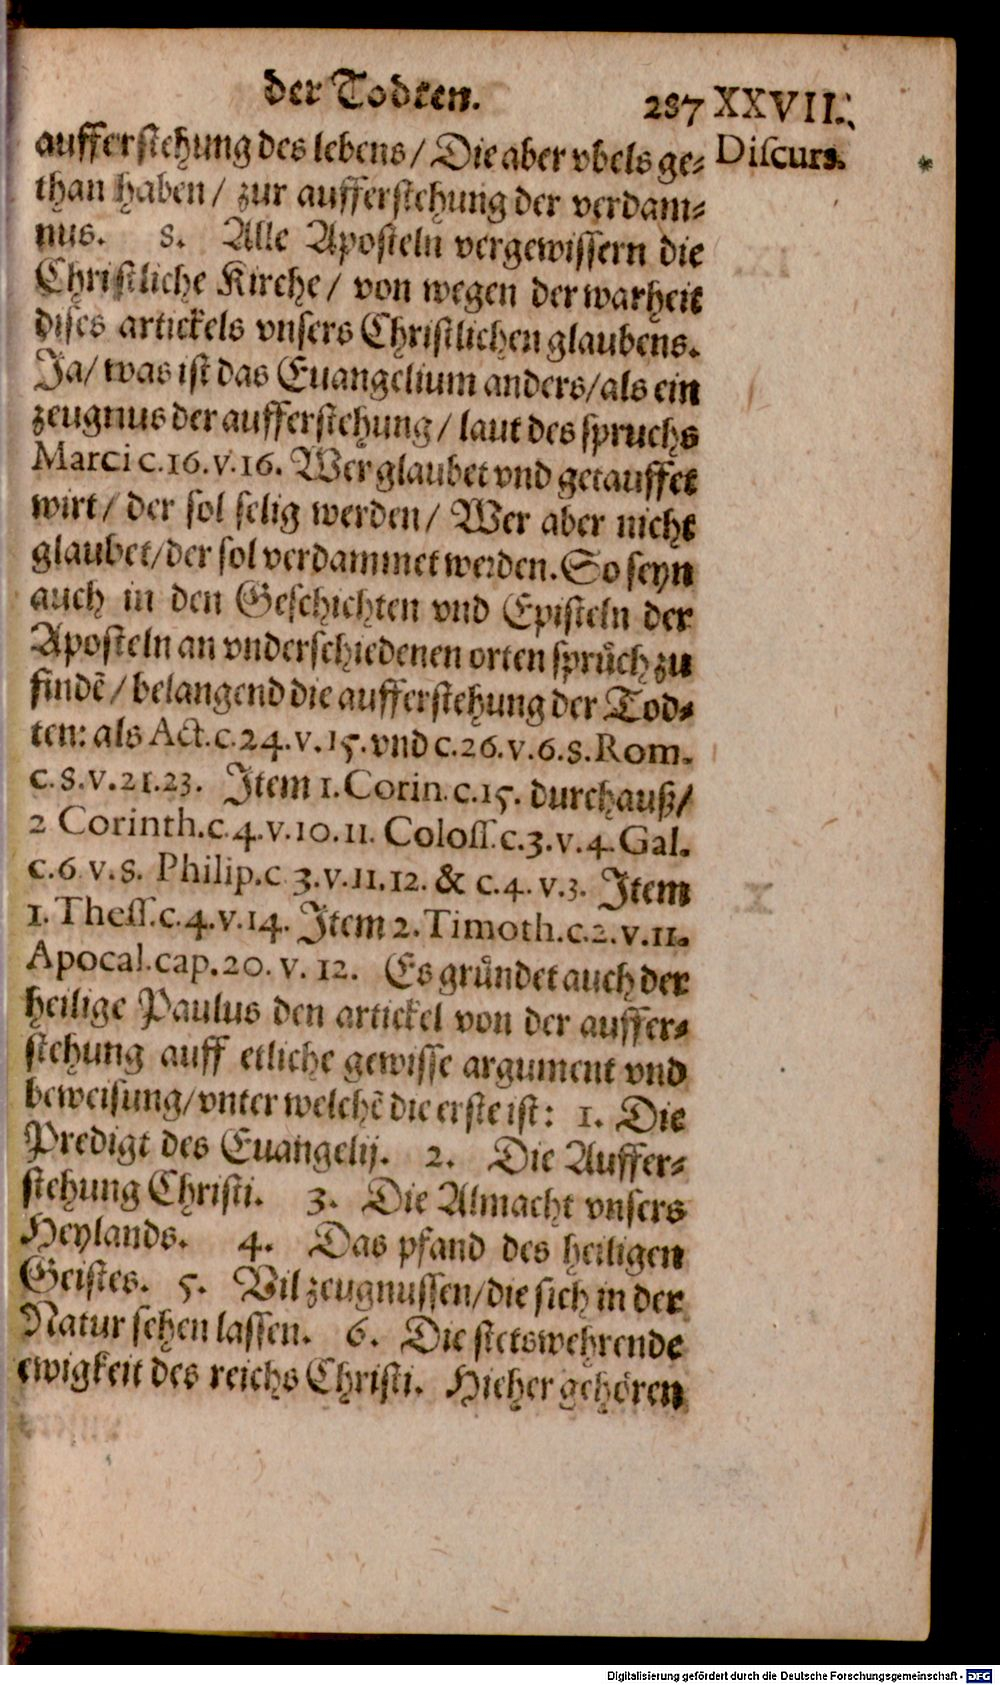 der Todten.
287 XXVII.
Discurs.
aufferstehung des lebens/ Die aber vbels ge-
than haben/ zur aufferstehung der verdam-
nus. 8. Alle Aposteln vergewissern die
Christliche Kirche/ von wegen der warheit
dises artickels vnsers Christlichen glaubens.
Ja/ was ist das Euangelium anders/ als ein
zeugnus der aufferstehung/ laut des spruchs
Marci c.16.v.16. Wer glaubet vnd getauffet
wirt/ der sol selig werden/ Wer aber nicht
glaubet/ der sol verdammet werden. So seyn
auch in den Geschichten vnd Episteln der
Aposteln an vnderschiedenen orten sprůch zu
findẽ/ belangend die aufferstehung der Tod-
ten: als Act.c.24.v.15. vnd c.26.v.6.8. Rom.
c.8.v.21.23. Item 1. Corin.c.15. durchauß/
2 Corinth.c.4.v.10.11. Coloss.c.3.v.4. Gal.
c.6 v.8. Philip.c 3.v.11.12. & c.4. v.3. Item
1. Thess.c.4.v.14. Item 2. Timoth.c.2.v.11.
Apocal.cap.20. v. 12. Es grůndet auch der
heilige Paulus den artickel von der auffer-
stehung auff etliche gewisse argument vnd
beweisung/ vnter welchẽ die erste ist: 1. Die
Predigt des Euangelij. 2. Die Auffer-
stehung Christi. 3. Die Almacht vnsers
Heylands. 4. Das pfand des heiligen
Geistes. 5. Vil zeugnussen/ die sich in der
Natur sehen lassen. 6. Die stetswehrende
ewigkeit des reichs Christi. Hieher gehören
Digitalisierung gefördert durch die Deutsche Forschungsgemeinschaft - DFG